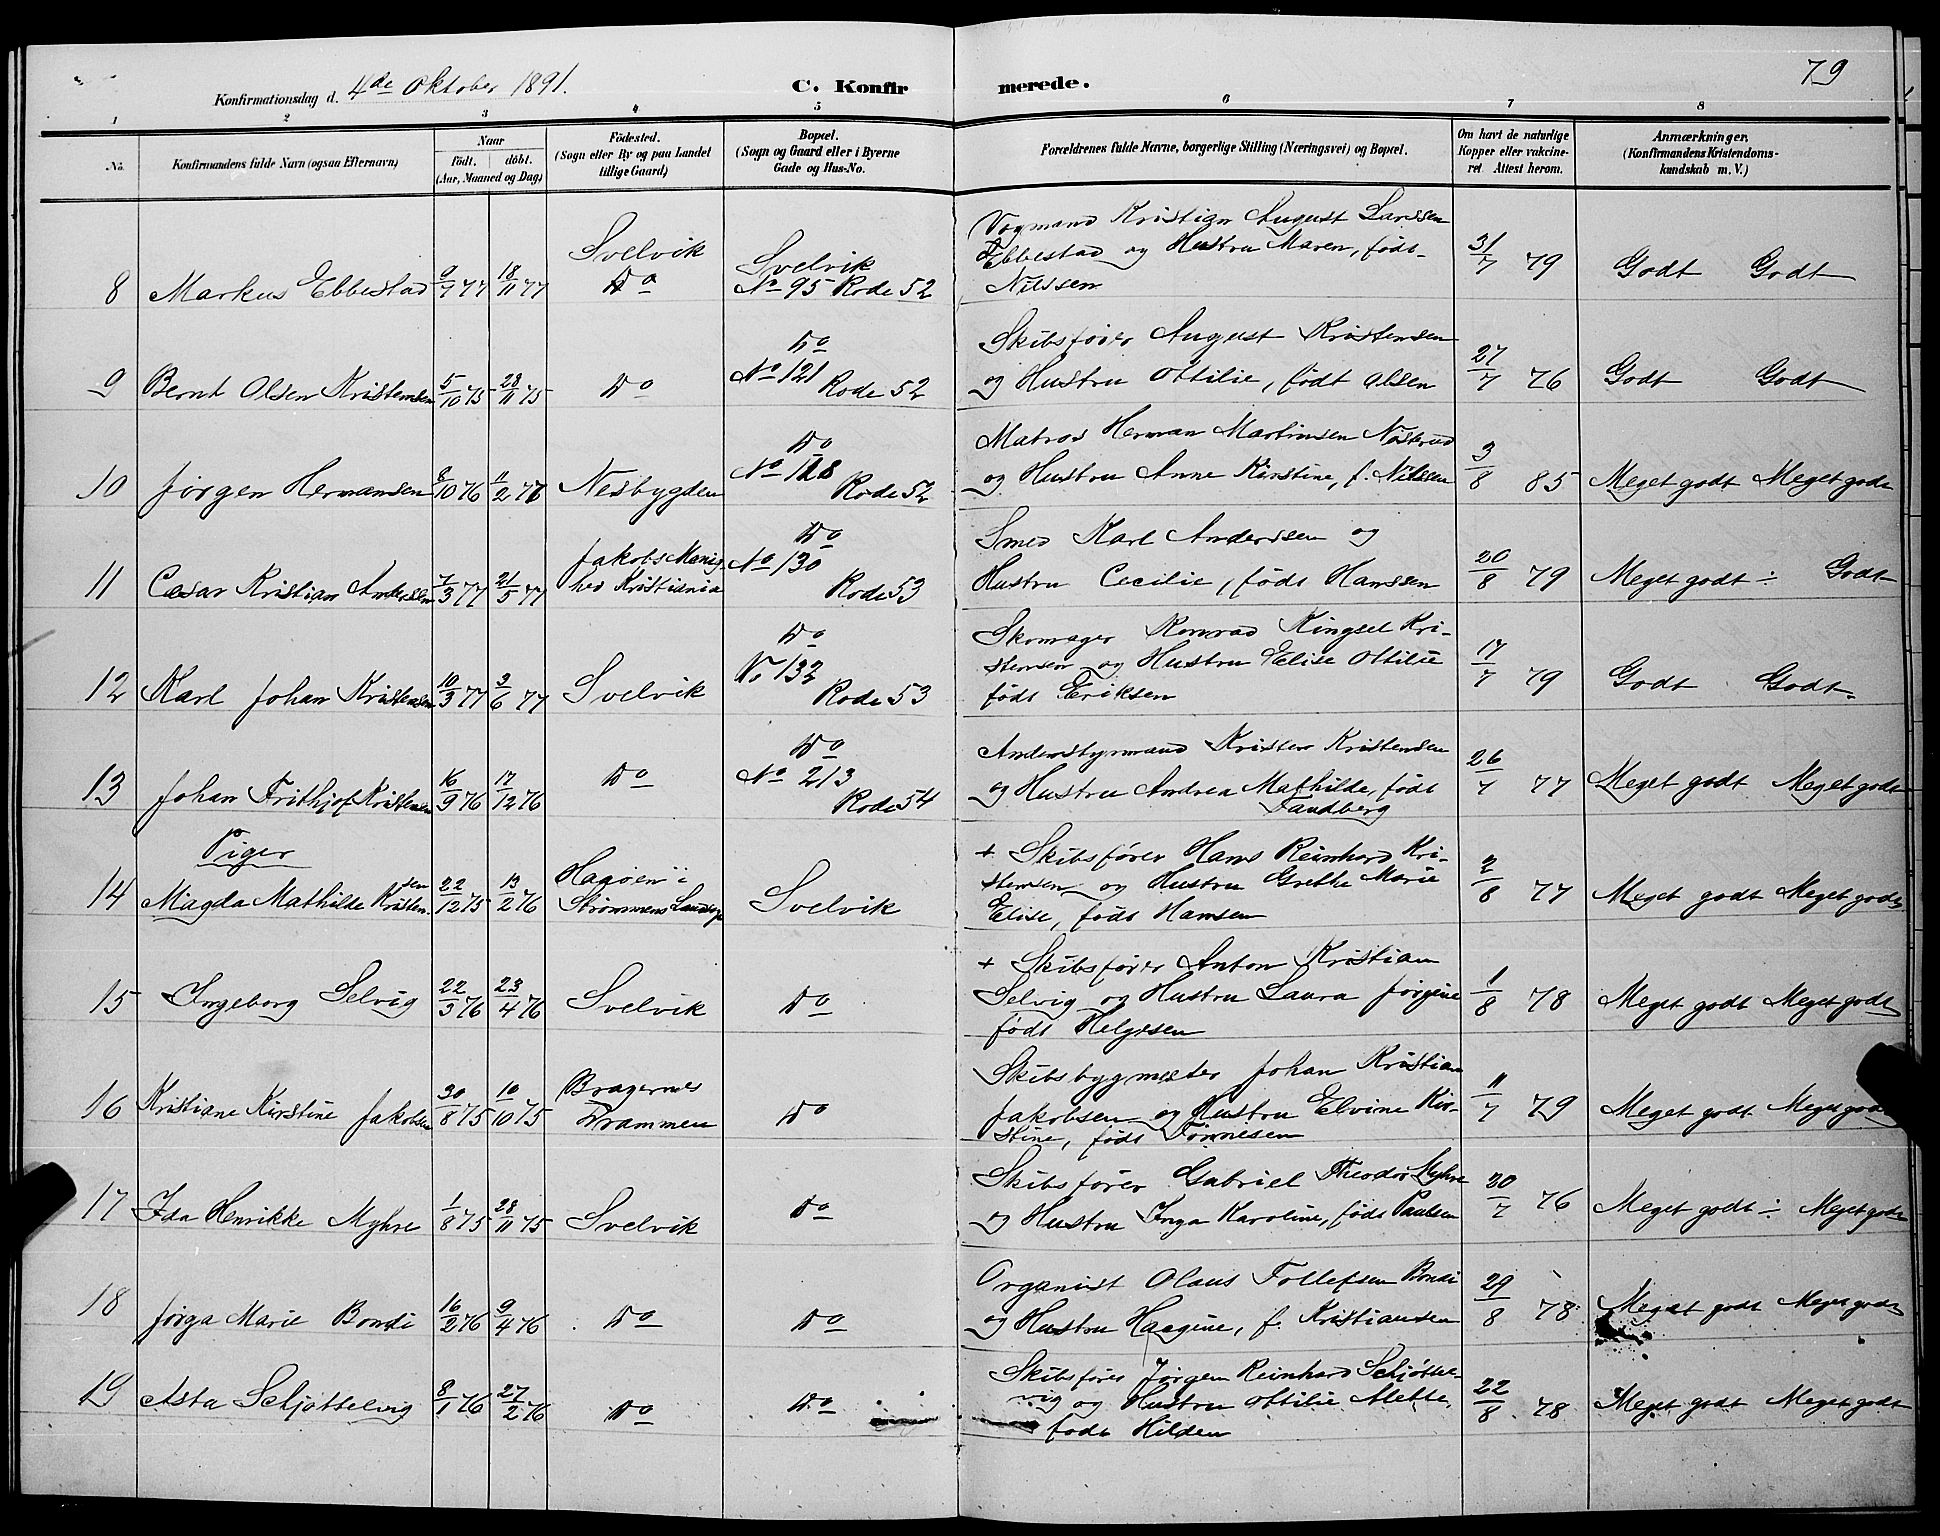 79
Konfirmationsdag d. 4de Oktober 1891.
C. Konfirmerede.
1 2 3 4 5 6 7 8
No.
Konfirmandens fulde Navn (ogsaa Efternavn)
Naar
født. døbt.
(Aar, Maaned og Dag)
Fødested.
(Sogn eller By og paa Landet
tillige Gaard)
Bopæl.
(Sogn og Gaard eller i Byerne
Gade og Hus-No.
Forældrenes fulde Navne, borgerlige Stilling (Næringsvei) og Bopæl.
Om havt de naturlige
Kopper eller vakcine-
ret. Attest herom.
Anmærkninger.
(Konfirmandens Kristendoms-
kundskab m. V.)
8 Markus Ebbestad 9/7 77 18/11 77
Svelvik
Do
Svelvik
No 95 Rode 52
Vogmand Kristian August Larssen
Ebbestad og Hustru Maren, født
Nilssen
31/7 79 Godt Godt
9 Bernt Olsen Kristensen 5/10 75 28/11 75 Do
Do
No 121
Rode 52
Skibsfører August Kristensen
og Hustru Ottilie, født Olsen
27/7 76 Godt Godt
10 Jørgen Hermansen 8/10 76 11/2 77 Nesbygden
Do
No 118
Rode 52
Matros Herman Martinsen Nøstrud
og Hustru Anne Kirstine, f. Nilssen
3/8 85 Meget godt Meget godt
11 Cæsar Kristian Andersen 7/3 77 21/5 77
Jakobs Menig-
hed Kristiania
Do
No 130
Rode 53
Smed Karl Anderssen og
Hustru Cecilie, født Hanssen
20/8 79 Meget godt ÷ Godt
12 Karl Johan Kristensen 10/3 77 3/6 77 Svelvik
Do
No 132
Rode 53
Skomager Konrad Ringsel Kri-
stensen og Hustru Elise Ottilie
født Eriksen
17/7 79 Godt Godt
13 Johan Frithjof Kristensen 16/9 76 17/12 76 Do
Do
No 213
Rode 54
Anden­styrmand Krister Kristensen
og Hustru Andrea Mathilde, født
Tandberg
26/7 77 Meget godt Meget godt
Piger
14 Magda Mathilde Kristensen 22/12 75 13/2 76
Hagøen i
Strømmens Landsogn
Svelvik
+ Skibsfører Hans Reinhard Kri-
stensen og Hustru Grethe Marie
Elise, født Hansen
2/8 77 Meget godt Meget godt
15 Ingeborg Selvig 22/3 76 23/4 76 Svelvik Do
+ Skibsfører Anton Kristian
Selvig og Hustru Laura Jørgine
født Helgesen
1/8 78 Meget godt Meget godt
16 Kristiane Kirstine Jakobsen 30/8 75 10/10 75
Bragernes
Drammen
Do
Skibsbygmester Johan Kristian
Jakobsen og Hustru Elvine Kir-
stine, født Tønnesen
11/7 79 Meget godt Meget godt
17 Ida Henrikke Myhre 1/8 75 28/11 75 Svelvik Do
Skibsfører Gabriel Theodor Myhre
og Hustru Inga Karoline, født Paulsen
20/7 76 Meget godt ÷ Meget godt
18 Jørga Marie Bondi 16/2 76 9/4 76 Do Do
Organist Olaus Tollefsen Bondi
og Hustru Haagine, f. Kristiansen
29/8 78 Meget godt Meget godt
19 Asta Schjøttelvig 8/1 76 27/2 76 Do Do
Skibsfører Jørgen Reinhard Schjøttel-
vig og Hustru Ottilie Alette,
født Hilden
22/8 78 Meget godt Meget godt